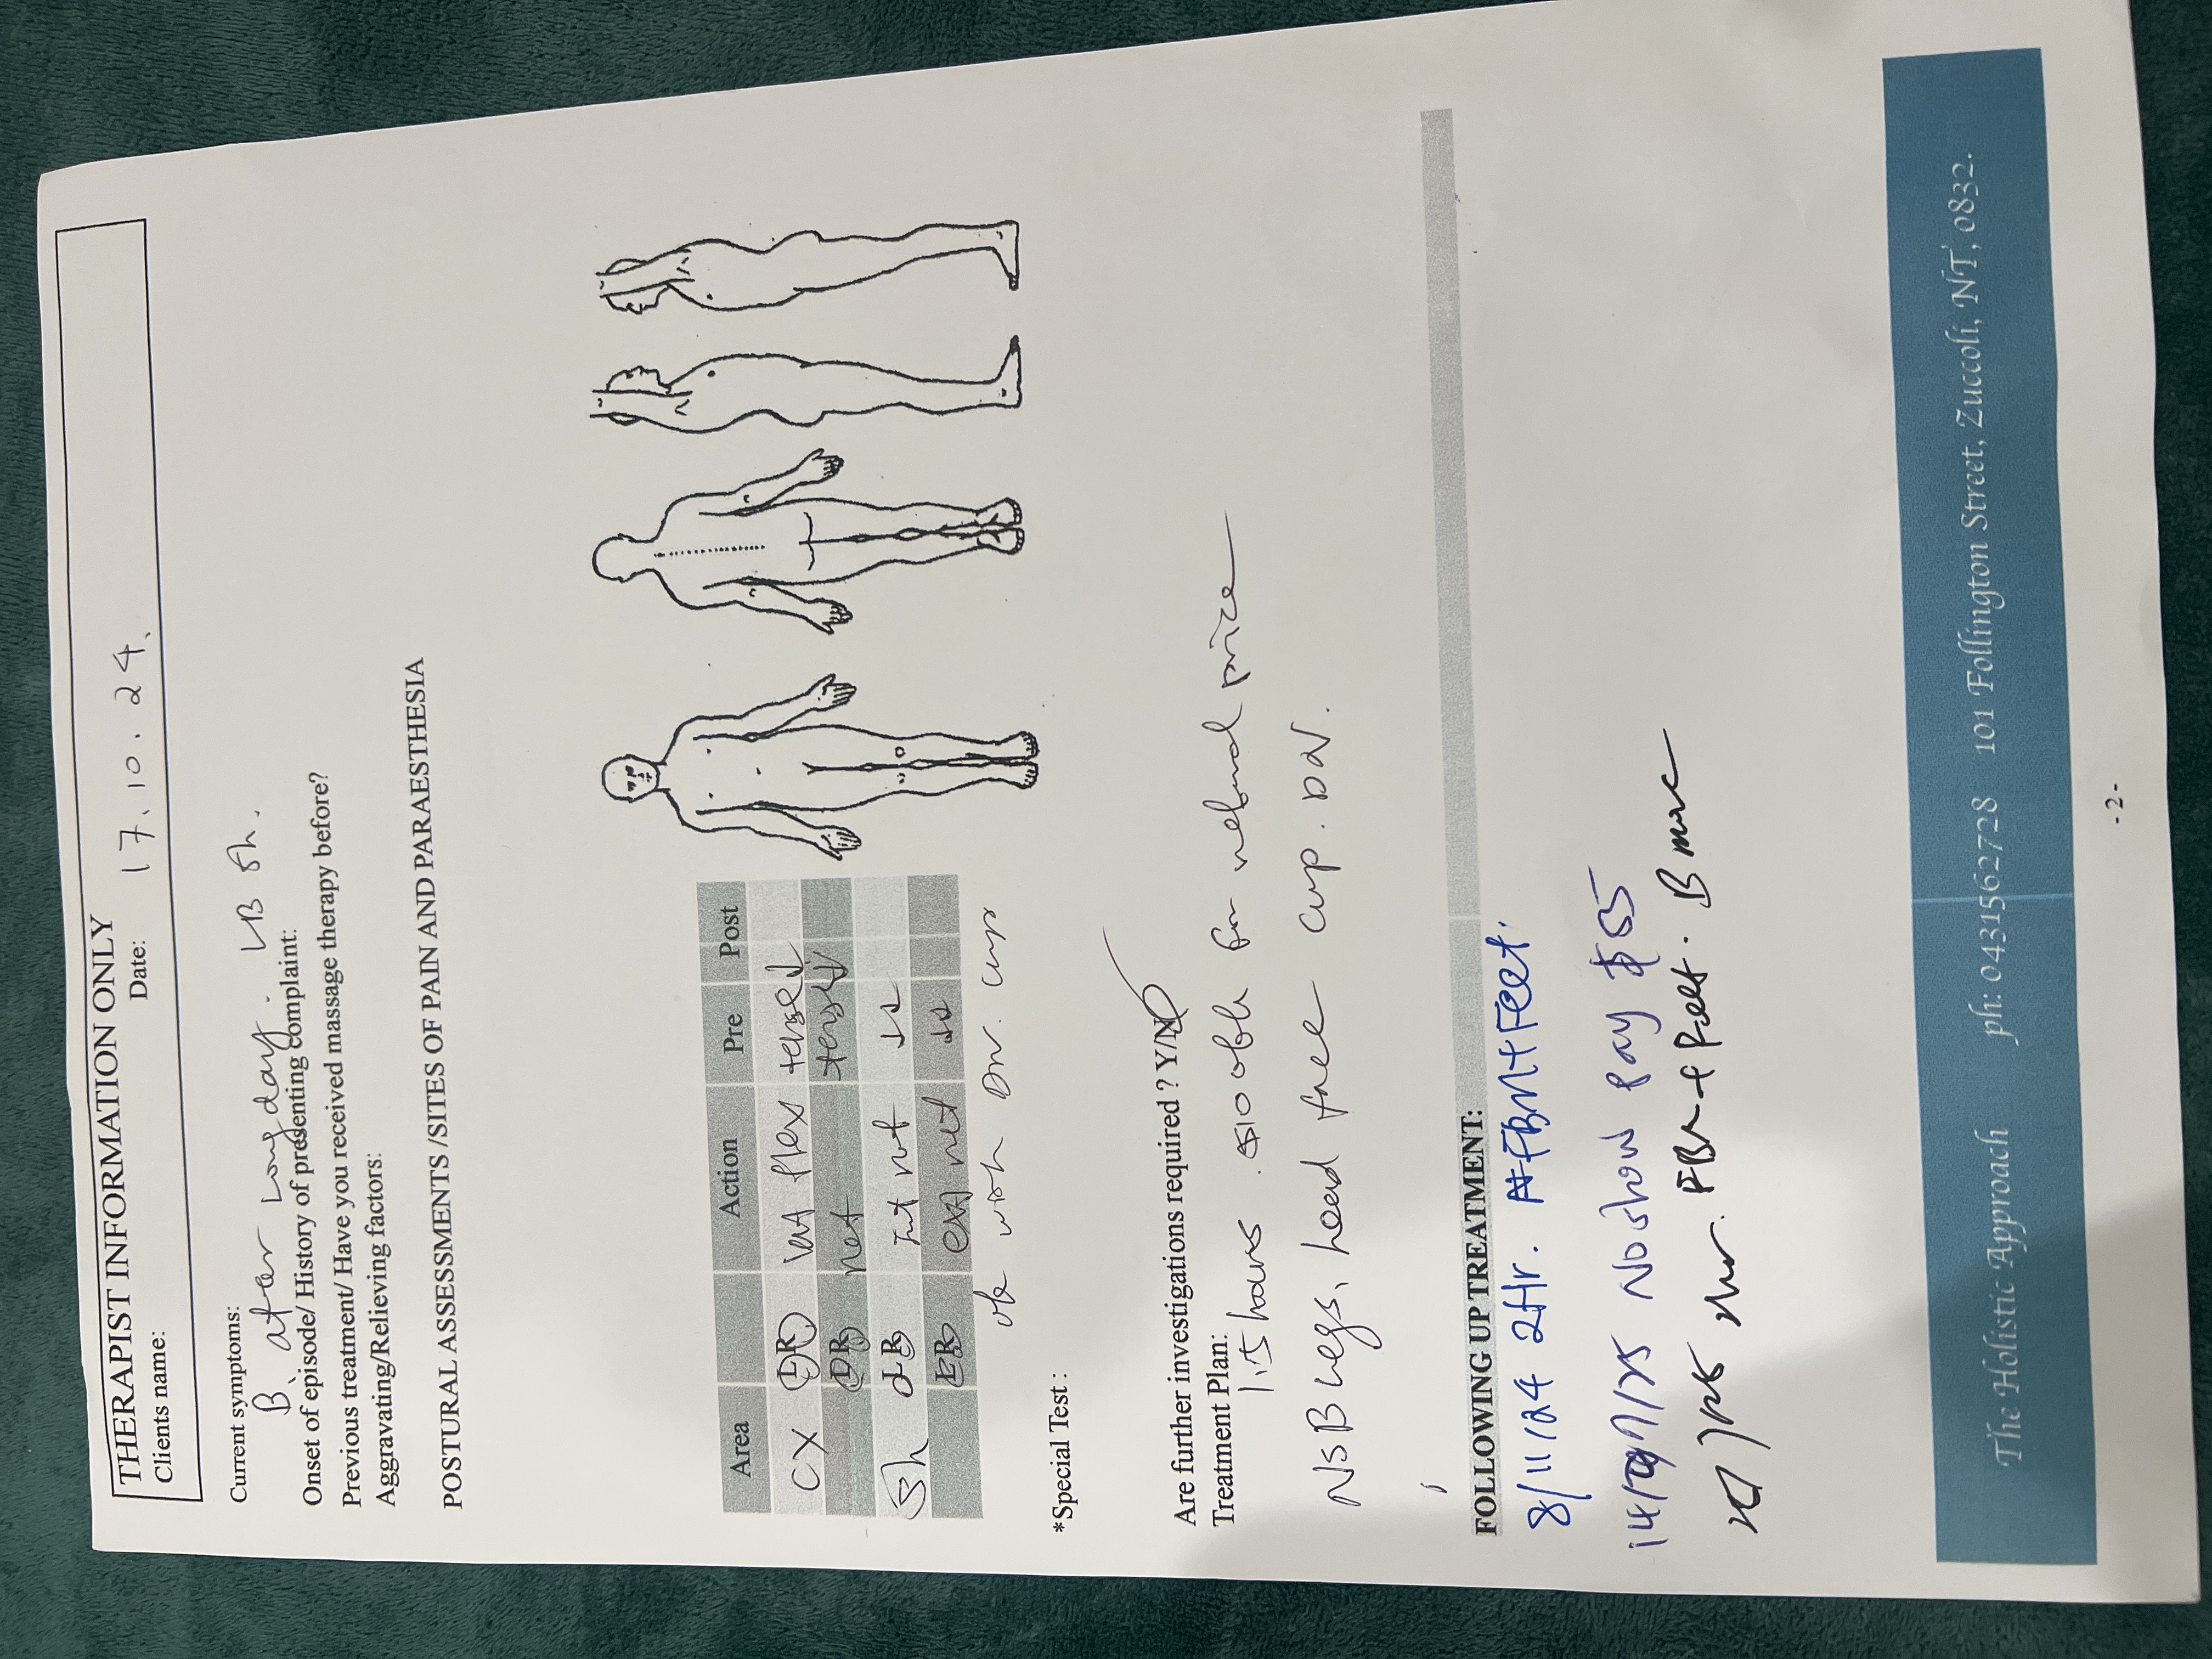 THERAPIST INFORMATION ONLY
Clients name: Date: 17.10.24.
Current symptoms:
B. after Long day. LB Sh.
Onset of episode/ History of presenting complaint:
Previous treatment/ Have you received massage therapy before?
Aggravating/Relieving factors:
POSTURAL ASSESSMENTS /SITES OF PAIN AND PARAESTHESIA
Area Action Pre Post
CX LR lat flex tense↓
LR rot tense↓
Sh LR Int rot ↓↓
LR ext rot ↓↓
ok with DN. cups
*Special Test :
Are further investigations required ? Y/N
Treatment Plan:
1.5 hours. $10 off for refund price
NSB legs, head free cup. DN.
FOLLOWING UP TREATMENT:
8/11/24 2Hr. FBM+Feet.
No show pay $85
2hr. FBM+feet. B more
The Holistic Approach ph: 0431562728 101 Follington Street, Zuccoli, NT, 0832.
-2-